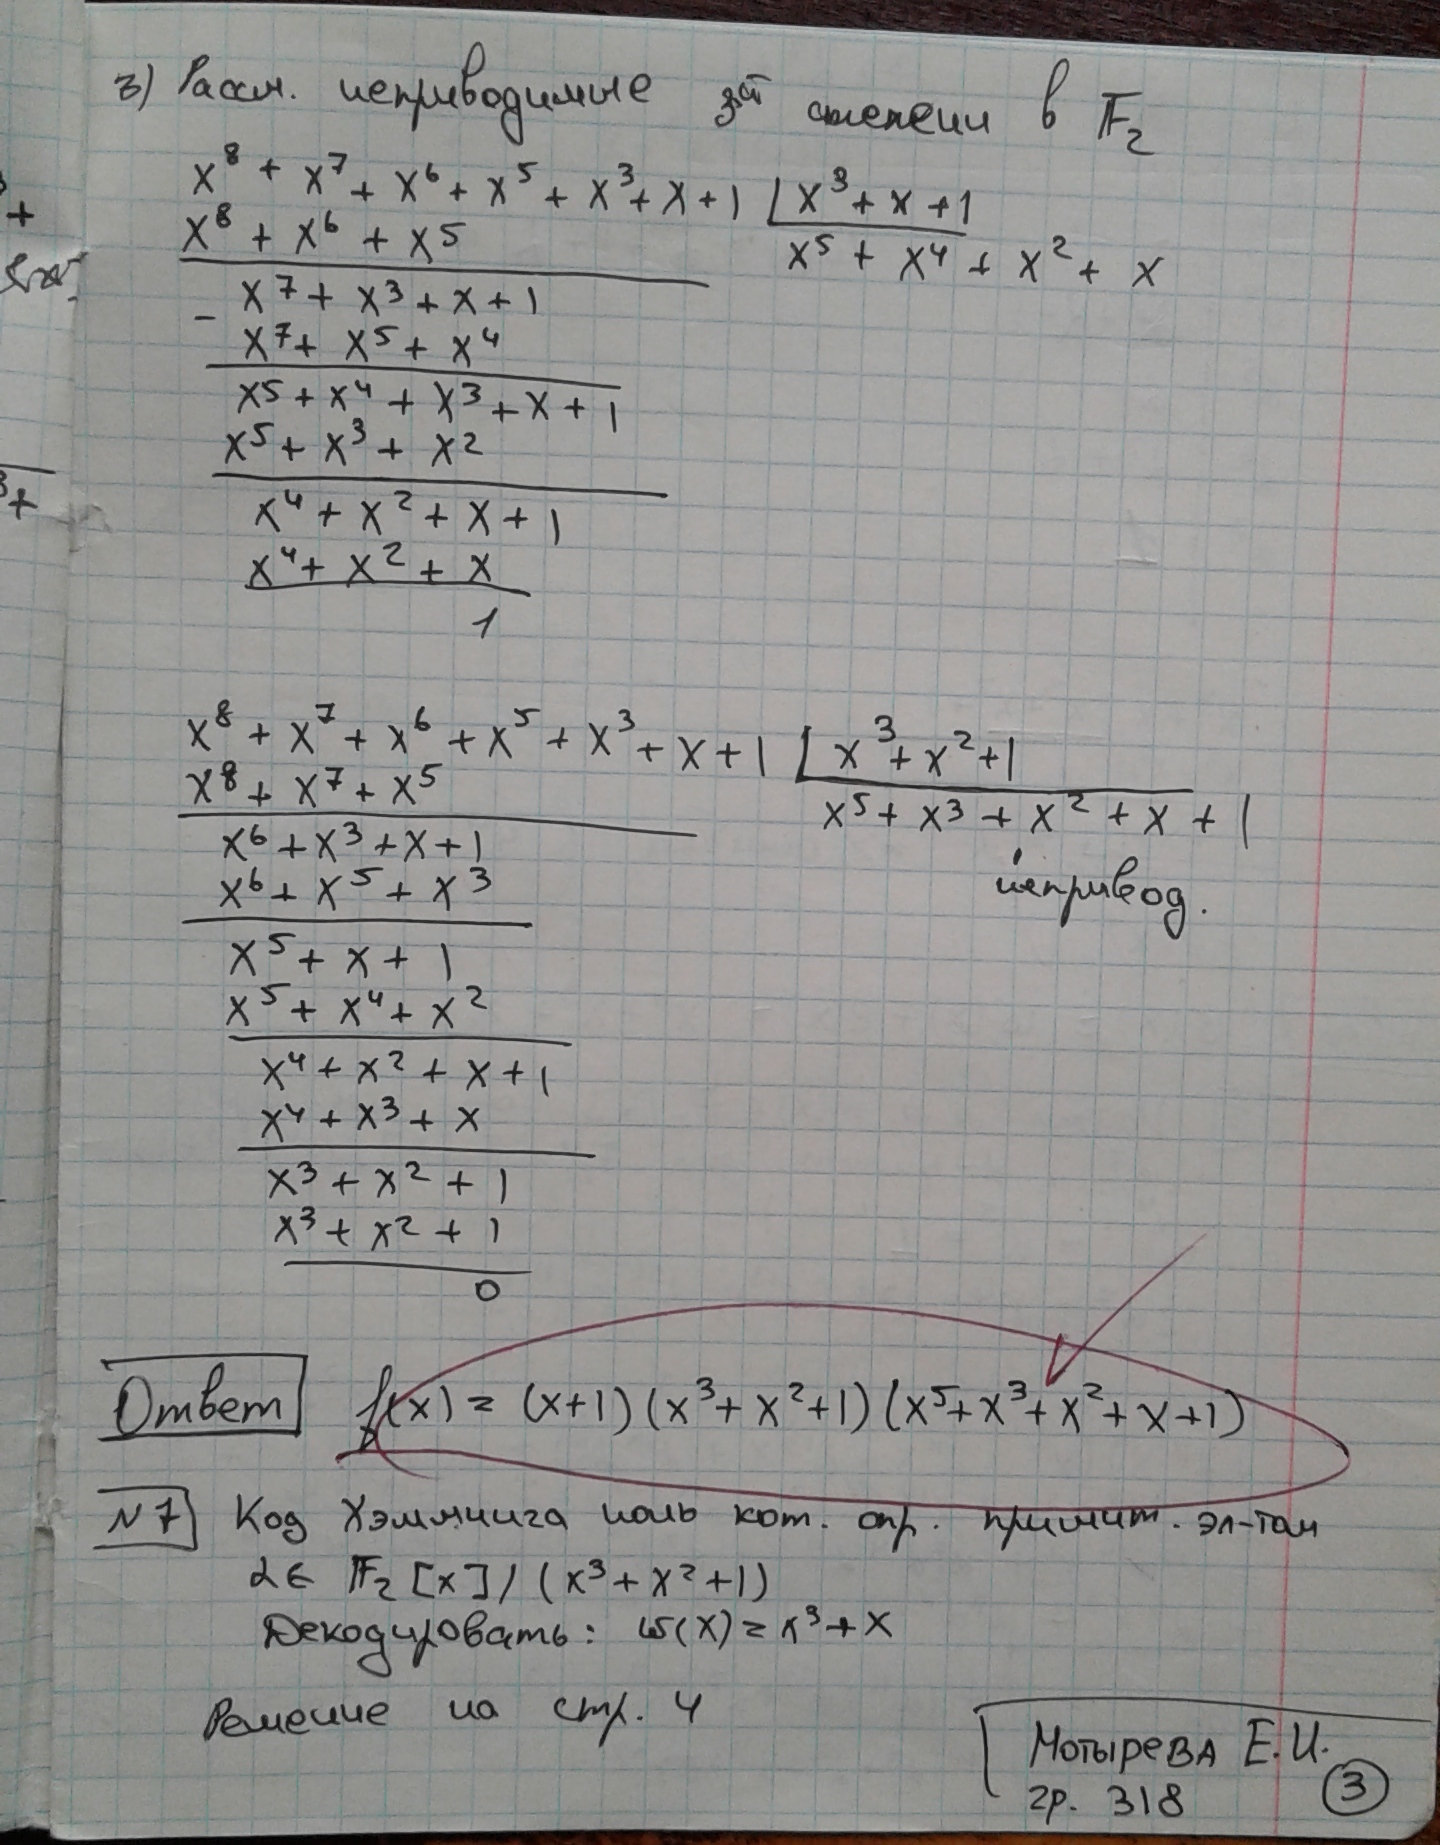 3) Рассм. неприводимые 3ей степени в F₂
x⁸ + x⁷ + x⁶ + x⁵ + x³ + x + 1 | x³ + x + 1
x⁸ + x⁶ + x⁵
x⁵ + x⁴ + x² + x
x⁷ + x³ + x + 1
− x⁷ + x⁵ + x⁴
x⁵ + x⁴ + x³ + x + 1
x⁵ + x³ + x²
x⁴ + x² + x + 1
x⁴ + x² + x
1
x⁸ + x⁷ + x⁶ + x⁵ + x³ + x + 1 | x³ + x² + 1
x⁸ + x⁷ + x⁵
x⁵ + x³ + x² + x + 1
x⁶ + x³ + x + 1
непривод.
x⁶ + x⁵ + x³
x⁵ + x + 1
x⁵ + x⁴ + x²
x⁴ + x² + x + 1
x⁴ + x³ + x
x³ + x² + 1
x³ + x² + 1
0
Ответ f(x) = (x+1)(x³+x²+1)(x⁵+x³+x²+x+1)
N7 Код Хэмминга ноль кот. опр. примит. эл-том
α ∈ F₂[x]/(x³+x²+1)
Декодировать: w(x) = x³ + x
Решение на стр. 4
Мотырева Е.И.
гр. 318
3